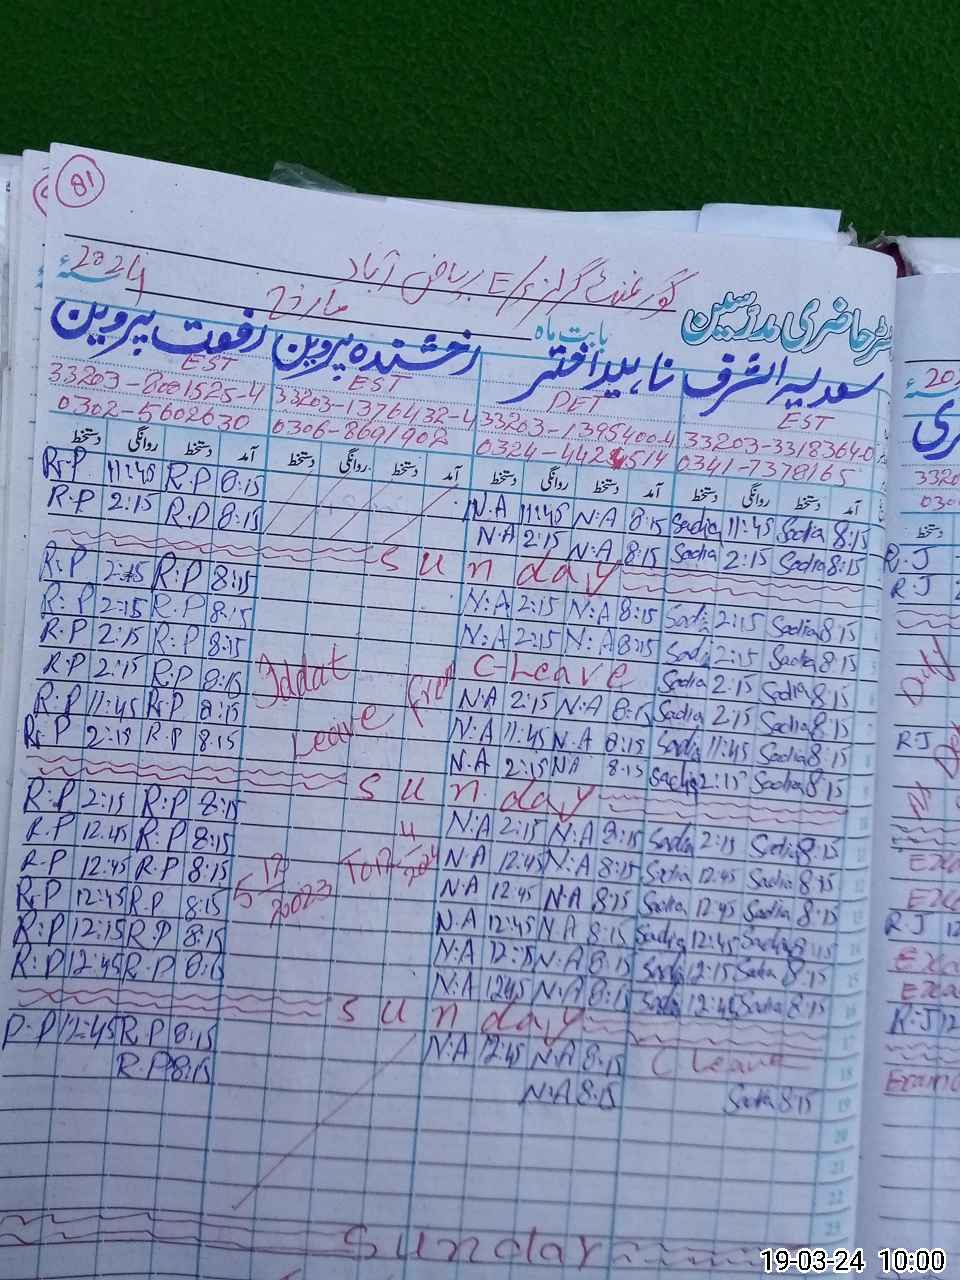 81
رجسٹر حاضری مدرسین
گورنمنٹ گرلز E/S ریاض آباد
بابت ماہ مارچ سنہ 2024ء
سعدیہ اشرف ناہید اختر رخشندہ پروین رفعت پروین
EST DET EST EST
33203-3318364-0 33203-1395400-4 33203-1376432-4 33203-8001525-4
0341-7378165 0324-4424514 0306-8691902 0302-5602630
آمد دستخط روانگی دستخط آمد دستخط روانگی دستخط آمد دستخط روانگی دستخط آمد دستخط روانگی دستخط
R.P 11:45 R.P 8:15 N.A 11:45 N.A 8:15 Sadia 11:45 Sadia 8:15
R.P 2:15 R.P 8:15 N.A 2:15 N.A 8:15 Sadia 2:15 Sadia 8:15
Sunday
R.P 2:15 R.P 8:15 N.A 2:15 N.A 8:15 Sadia 2:15 Sadia 8:15
R.P 2:15 R.P 8:15 N.A 2:15 N.A 8:15 Sadia 2:15 Sadia 8:15
R.P 2:15 R.P 8:15 C-Leave Sadia 2:15 Sadia 8:15
R.P 2:15 R.P 8:15 Iddat N.A 2:15 N.A 8:15 Sadia 2:15 Sadia 8:15
R.P 11:45 R.P 8:15 Leave from N.A 11:45 N.A 8:15 Sadia 11:45 Sadia 8:15
R.P 2:15 R.P 8:15 N.A 2:15 N.A 8:15 Sadia 2:15 Sadia 8:15
Sunday
R.P 2:15 R.P 8:15 N.A 2:15 N.A 8:15 Sadia 2:15 Sadia 8:15
R.P 12:45 R.P 8:15 N.A 12:45 N.A 8:15 Sadia 12:45 Sadia 8:15
R.P 12:45 R.P 8:15 N.A 12:45 N.A 8:15 Sadia 12:45 Sadia 8:15
R.P 12:45 R.P 8:15 5 12 2023 To N.A 12:45 N.A 8:15 Sadia 12:45 Sadia 8:15
R.P 12:15 R.P 8:15 N.A 12:15 N.A 8:15 Sadia 12:15 Sadia 8:15
R.P 12:45 R.P 8:15 N.A 12:45 N.A 8:15 Sadia 12:45 Sadia 8:15
Sunday
R.P 12:45 R.P 8:15 N.A 12:45 N.A 8:15 C Leave
R.P 8:15 N.A 8:15 Sadia 8:15
Sunday
17
18
19
20
21
22
23
R.J
R.J
R.J
R.J 12
R.J 12
19-03-24 10:00